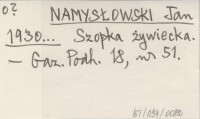 o? NAMYSŁOWSKI Jan
1930... Szopka żywiecka.
— Gaz. Podh. 18, nr 51.